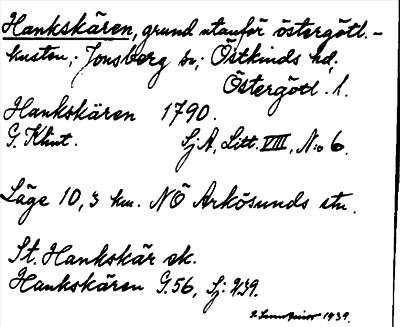 Hankskären, grund utanför östergötl.-
kusten,; Jonsberg sn; Östkinds hd,
Östergötl. l.
Hankskären 1790.
G. Klint. SjA, Litt. VIII, N:o 6.
Läge 10,3 km. NÖ Arkösunds stn.
St. Hankskär ek.
Hankskären G. 56, Sj: 239.
1939.